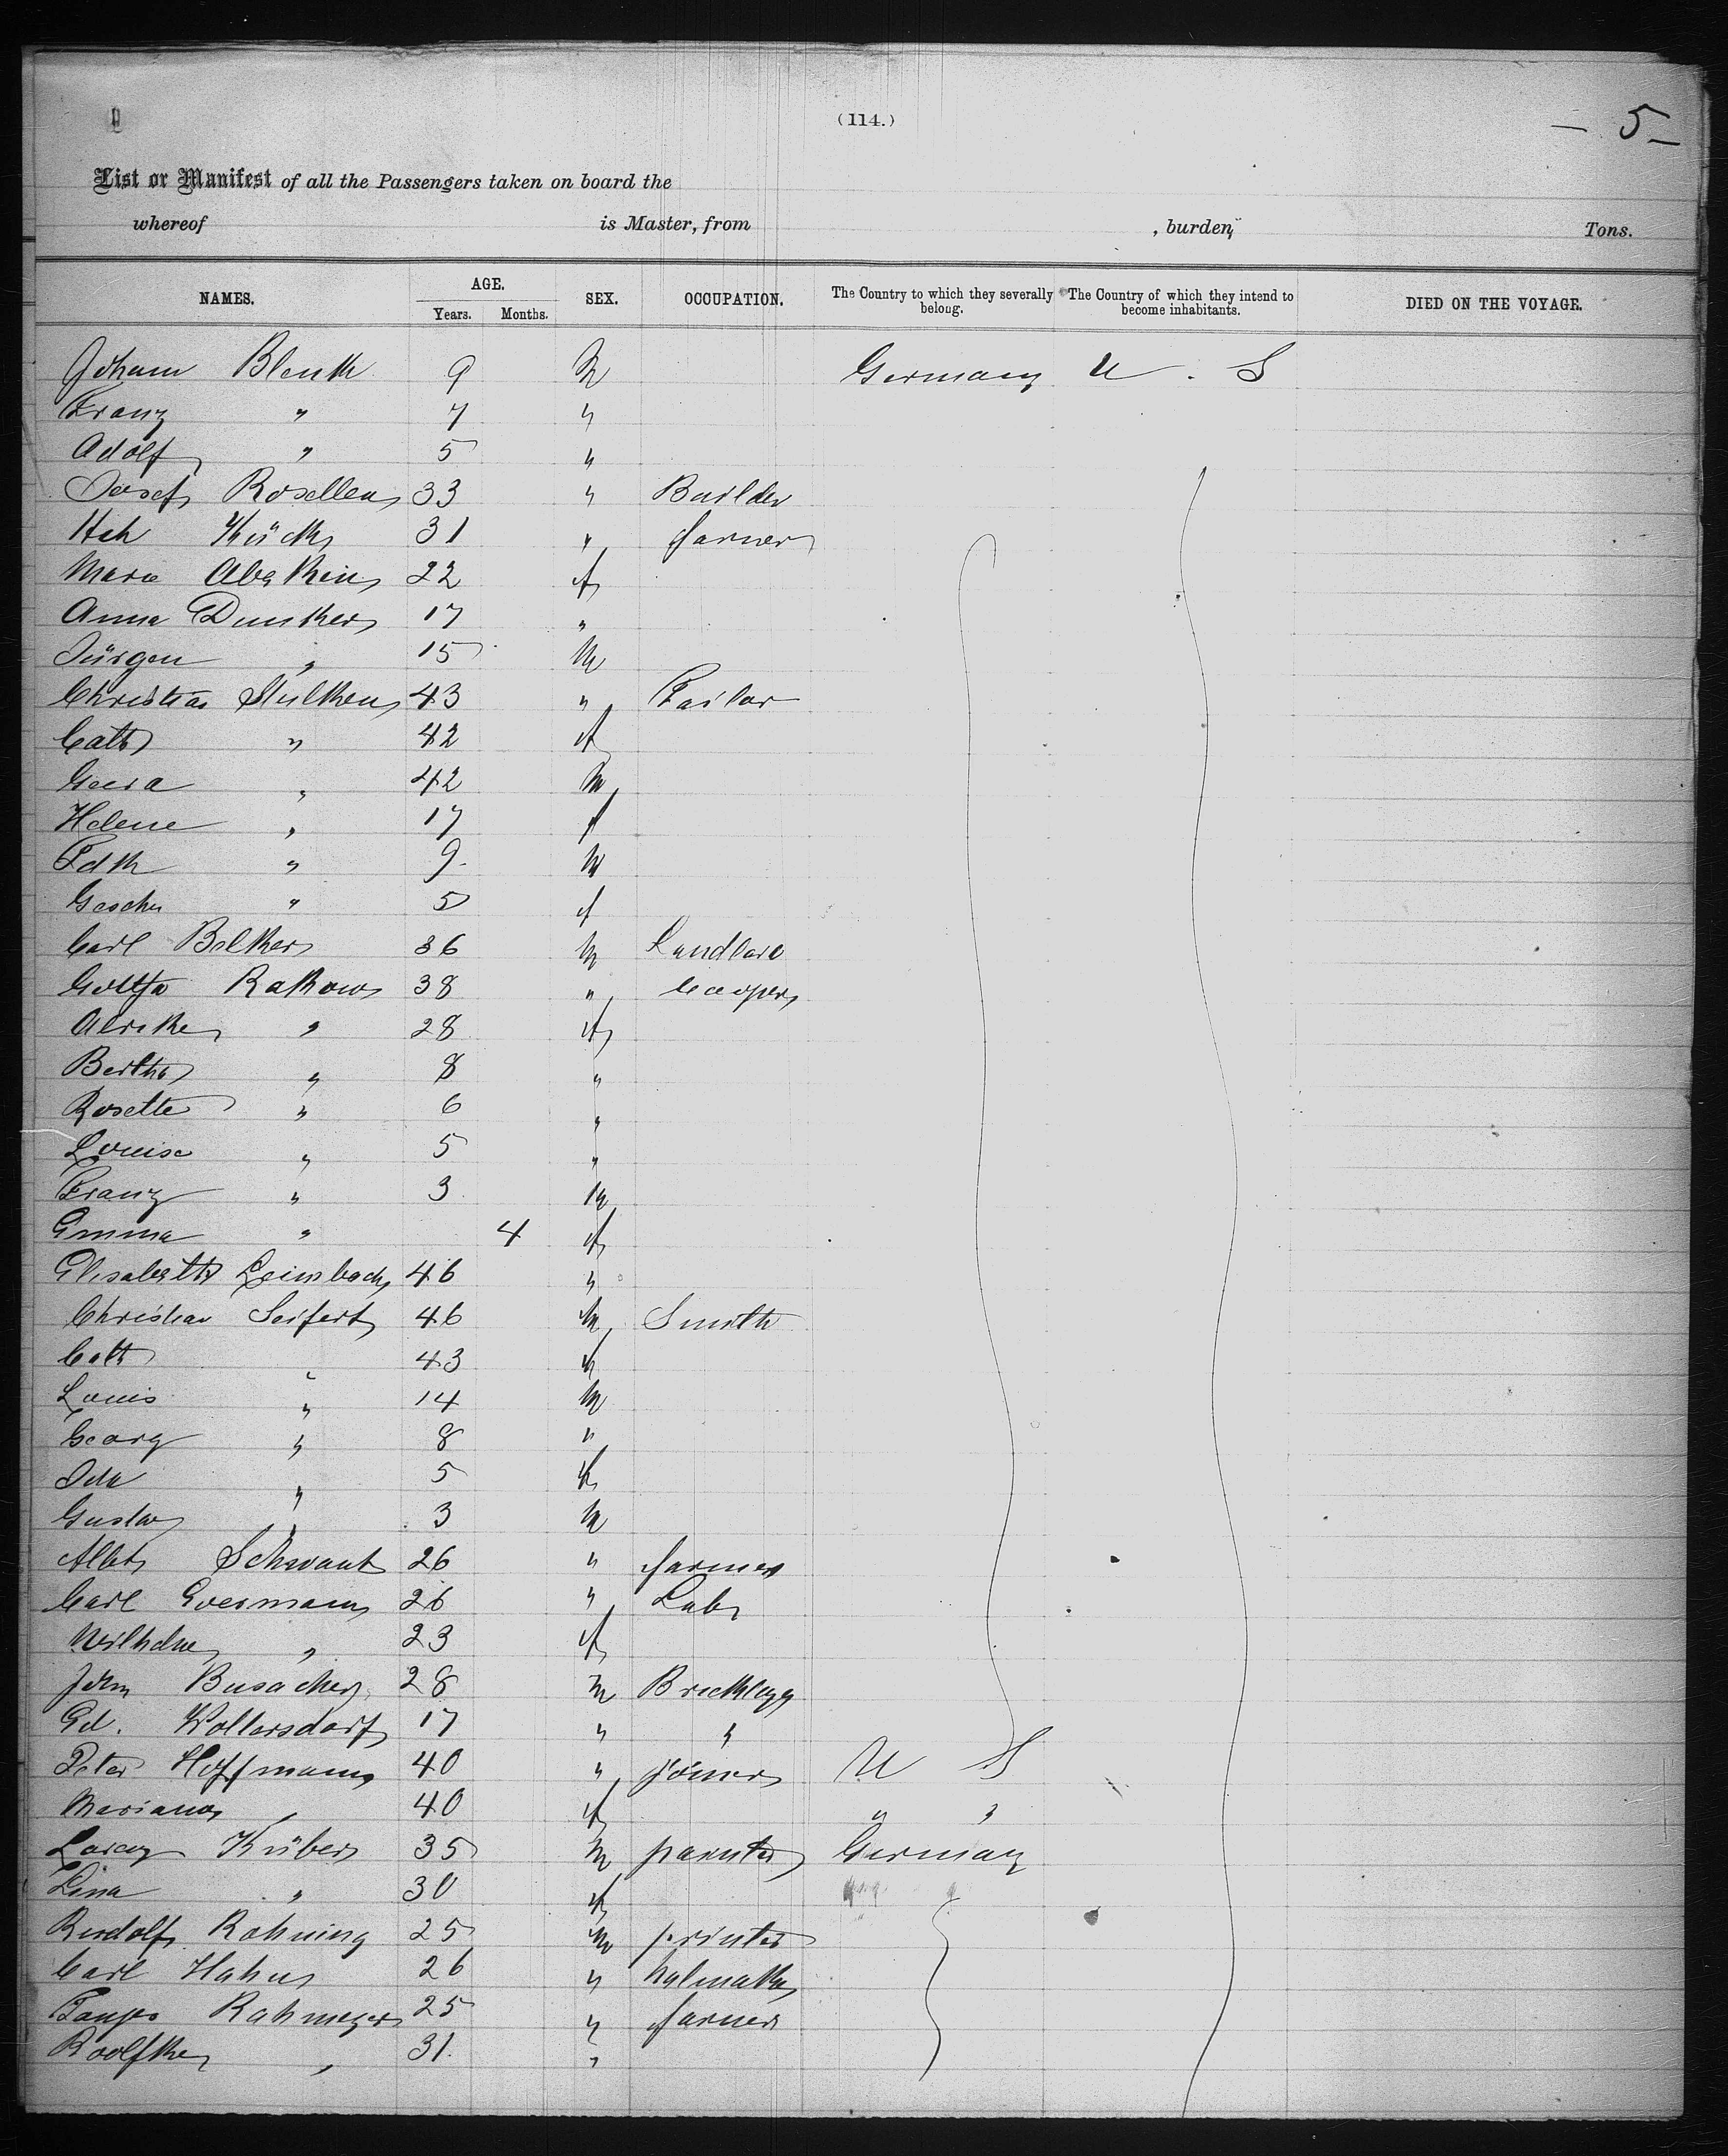 (114.)
— 5 —
List or Manifest of all the Passengers taken on board the
whereof is Master, from , burden Tons.
NAMES. AGE. SEX. OCCUPATION. The Country to which they severally belong. The Country of which they intend to become inhabitants. DIED ON THE VOYAGE.
Years. Months.
Johann Blenk 9 M Germany U. S
Franz " 7 "
Adolf " 5 "
Josef Rosellen 33 " Builder
Kück 31 " farmer
Marie 22 f
Anna Dunker 17 "
Jürgen " 15 M
Christian Stulken 43 " Tailor
Cath " 42 f
" 42 M
Helene " 17 f
" 9 M
Gesche " 5 f
Carl Belker 36 M
Rakow 38 " Cooper
Ulrike " 28 f
Bertha " 8 "
Rosette " 6 "
Louise " 5 "
Franz " 3 M
Emma " 4 f
Elisabeth Leimbach 46 "
Christian Seifert 46 M Smith
Cath " 43 f
Louis " 14 M
Georg " 8 "
Ida " 5 f
Gustav " 3 M
Albt Schwant 26 " farmer
Carl Evermann 26 " Labr
Wilhelne " 23 f
John Busacker 28 M Bricklayr
Ed. Wollersdorf 17 " "
Peter Hoffmann 40 " joiner U S
Mariana " 40 f " "
Lorenz Küber 35 M painter Germany
Lina " 30 f
Rudolf Rohning 25 M printer
Carl Hahn 26 "
Rahmeyer 25 " farmer
Roolfke " 31 "